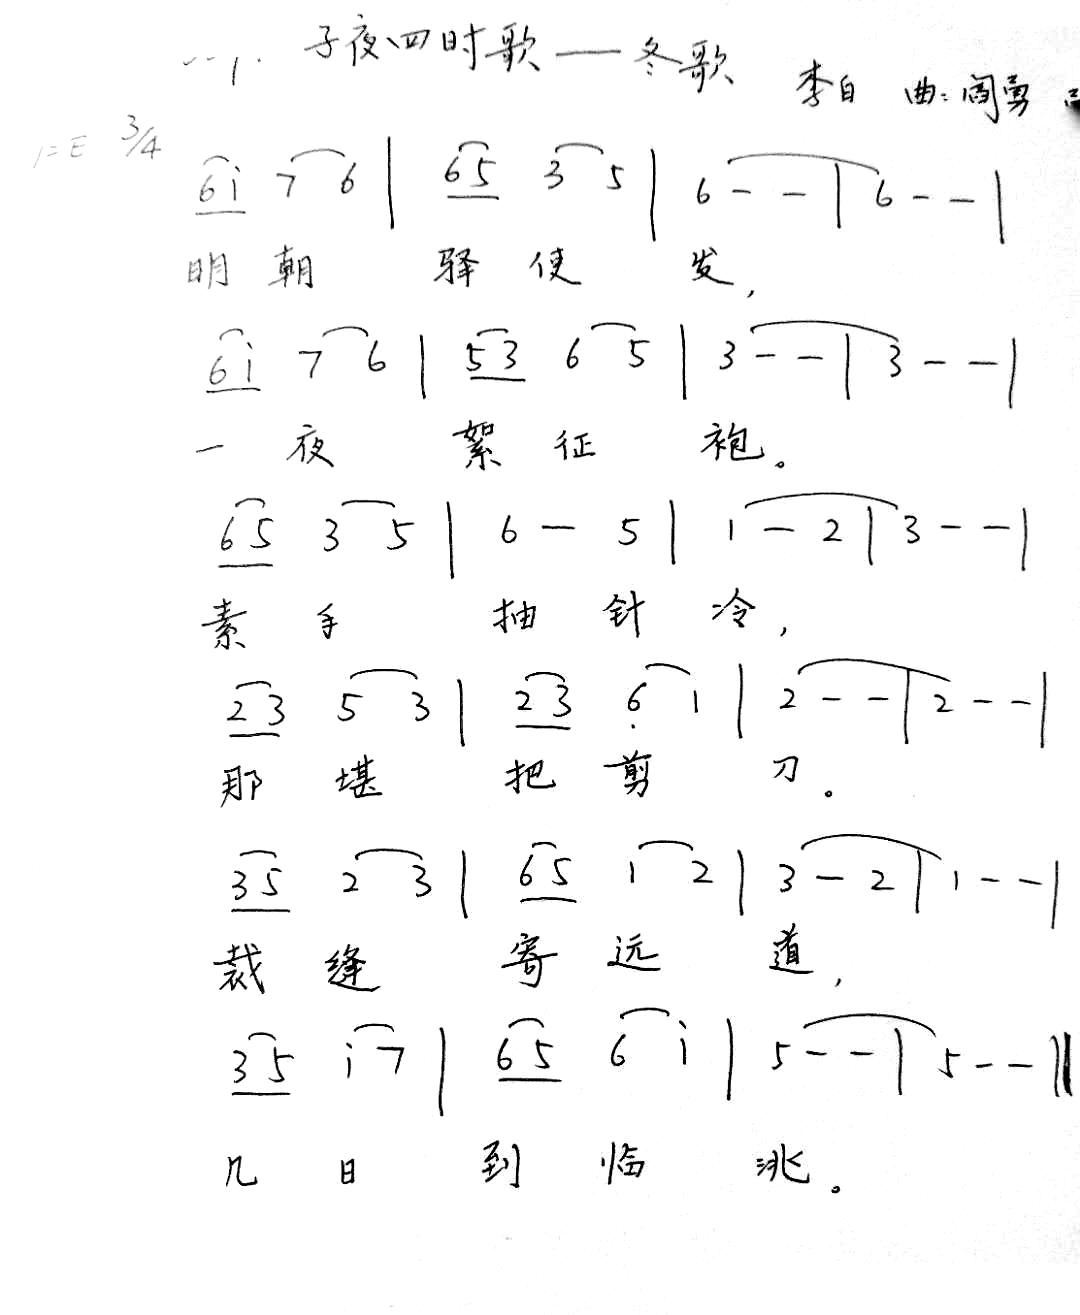 子夜四时歌——冬歌
李白 曲:阎勇
1=E 3/4
6i 7 6 | 65 3 5 | 6 - - | 6 - - |
明朝 驿使 发,
6i 7 6 | 53 6 5 | 3 - - | 3 - - |
一夜 絮征 袍。
65 3 5 | 6 - 5 | 1 - 2 | 3 - - |
素手 抽针冷,
23 5 3 | 23 6̣ 1 | 2 - - | 2 - - |
那堪 把剪 刀。
35 2 3 | 65 1 2 | 3 - 2 | 1 - - |
裁缝 寄远 道,
35 i 7 | 65 6 i | 5 - - | 5 - - ||
几日 到临 洮。